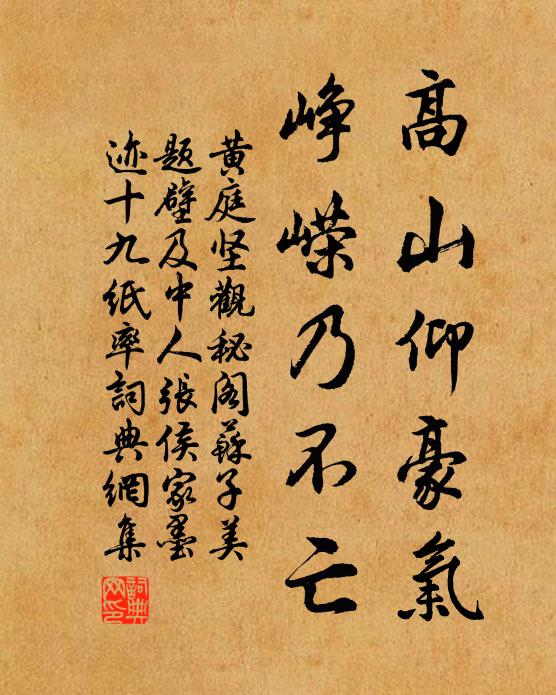 高山仰豪氣
峥嵘乃不亡
黄庭坚觀秘阁蘇子美
题壁及中人張侯家墨
迹十九紙率詞典網集
詞典網印